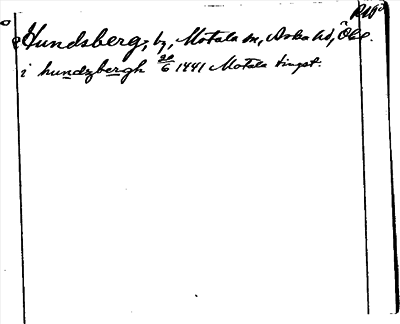 Hundsberg, by, Motala sn, Aska hd, Ög.
i hundzbergh 20/6 1441 Motala tingst.